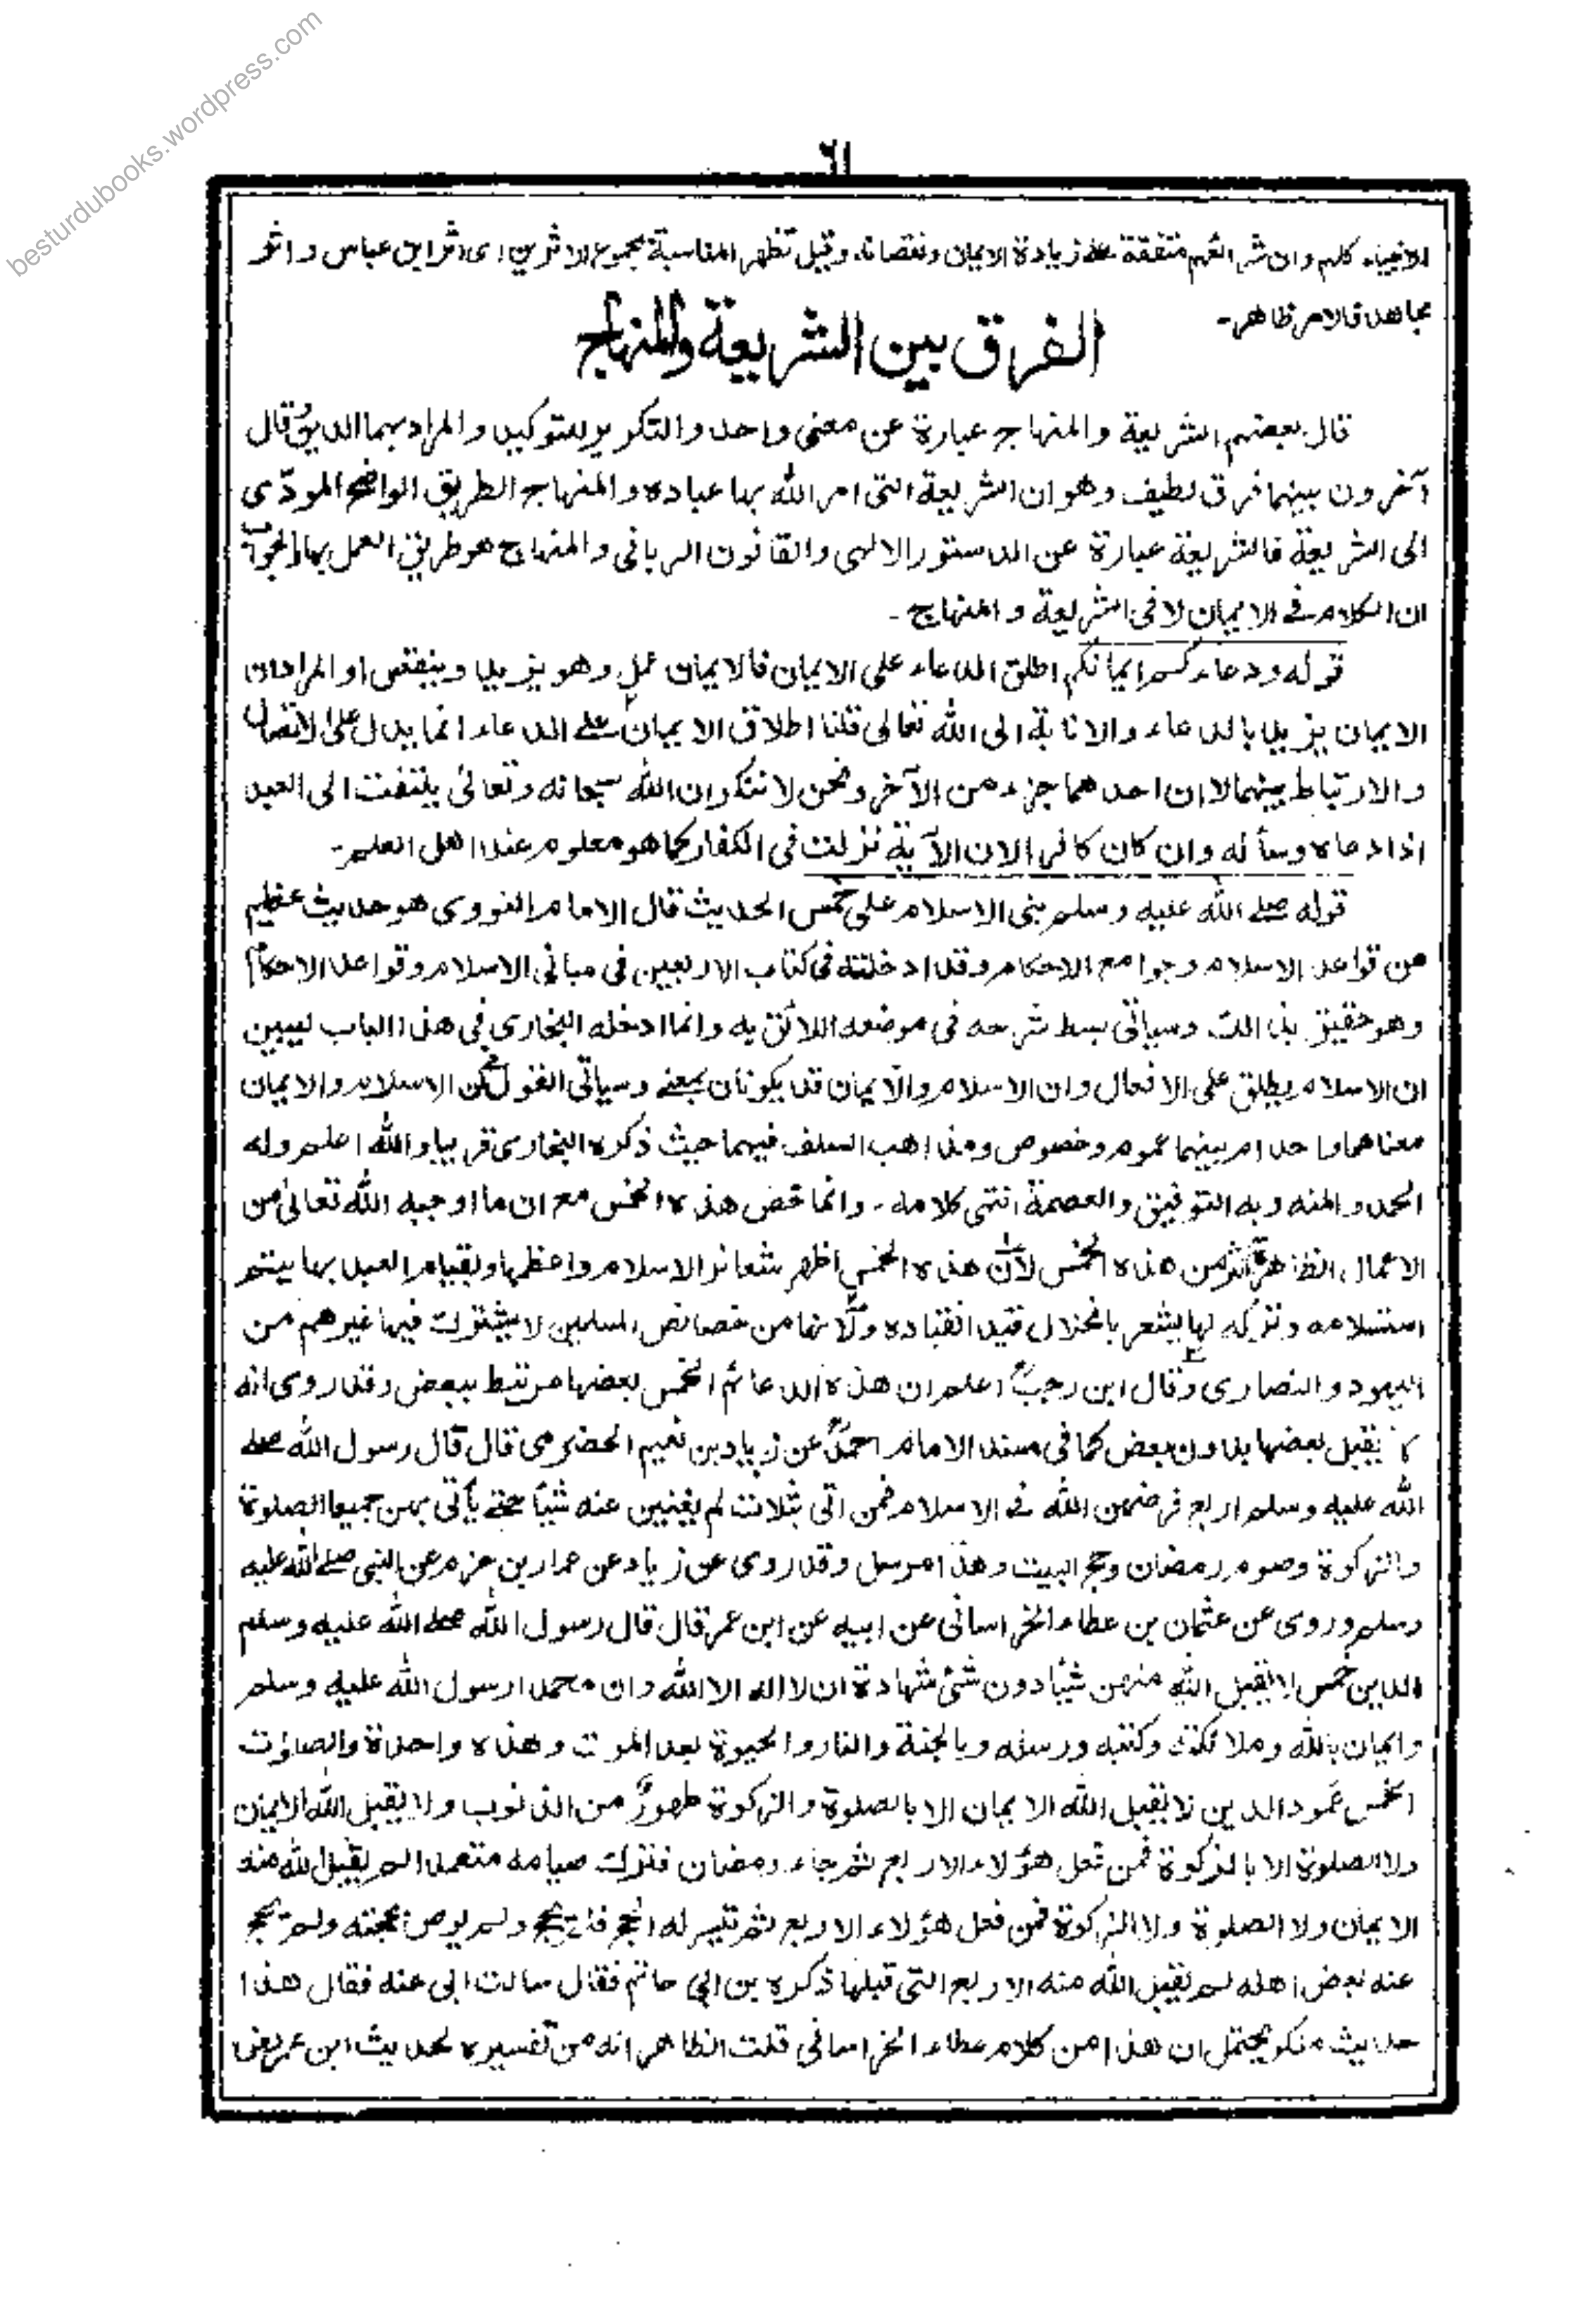 besturdubooks.wordpress.com
٦١
الانبياء كلهم وان شرائعهم متفقة على زيادة الايمان ونقصانه وقيل تظهر المناسبة بمجموع الاثرين اى اثر ابن عباس واثر
مجاهد فالامر ظاهر۔
الفرق بين الشريعة والمنهاج
قال بعضهم الشريعة والمنهاج عبارة عن معنى واحد والتكرير للتوكيد والمراد بهما الدين وقال
آخرون بينهما فرق لطيف وهو ان الشريعة التى امر الله بها عباده والمنهاج الطريق الواضح المودّى
الى الشريعة فالشريعة عبارة عن الدستور الالهى والقانون الربانى والمنهاج هو طريق العمل بها والجواب
ان الكلام فى الايمان لا فى الشريعة والمنهاج۔
قوله ودعاءكم ايمانكم اطلق الدعاء على الايمان فالايمان عمل وهو يزيد وينقص او المراد ان
الايمان يزيد بالدعاء والانابة الى الله تعالى قلنا اطلاق الايمان على الدعاء انما يدل على الاتصال
والارتباط بينهما لا ان احدهما جزء من الآخر ونحن لا ننكر ان الله سبحانه وتعالى يلتفت الى العبد
اذا دعاه وسأله وان كان كافرا لان الآية نزلت فى الكفار كما هو معلوم عند اهل العلم۔
قوله صلى الله عليه وسلم بنى الاسلام على خمس الحديث قال الامام النووى هو حديث عظيم
من قواعد الاسلام وجوامع الاحكام وقد ادخلته فى كتاب الاربعين فى مبانى الاسلام وقواعد الاحكام
وهو حقيق بذالك وسيأتى بسط شرحه فى موضعه اللائق به وانما ادخله البخارى فى هذا الباب ليبين
ان الاسلام يطلق على الافعال وان الاسلام والايمان قد يكونان بمعنى وسيأتى القول فى ان الاسلام والايمان
معناهما واحد ام بينهما عموم وخصوص ومذاهب السلف فيهما حيث ذكره البخارى قريبا والله اعلم وله
الحمد والمنه وبه التوفيق والعصمة انتهى كلامه۔ وانما خص هذه الخمس مع ان ما اوجبه الله تعالى من
الاعمال الظاهرة اكثر من هذه الخمس لان هذه الخمس اظهر شعائر الاسلام واعظمها وبقيام العبد بها يتم
استسلامه وتركه لها يشعر بانحلال قيد انقياده ولانها من خصائص المسلمين لا يشترك فيها غيرهم من
اليهود والنصارى وقال ابن رجبؒ اعلم ان هذه الدعائم الخمس بعضها مرتبط ببعض وقد روى انه
لا يقبل بعضها بدون بعض كما فى مسند الامام احمدؒ عن زياد بن نعيم الحضرمى قال قال رسول الله صلى
الله عليه وسلم اربع فرضهن الله فى الاسلام فمن اتى بثلاث لم يغنين عنه شيأ حتى يأتى بهن جميعا الصلوة
والزكوة وصوم رمضان وحج البيت وهذا مرسل وقد روى عن زياد عن عمار بن حزم عن النبى صلى الله عليه
وسلم وروى عن عثمان بن عطاء الخراسانى عن ابيه عن ابن عمر قال قال رسول الله صلى الله عليه وسلم
الدين خمس لا يقبل الله منهن شيأ دون شئ شهادة ان لا اله الا الله وان محمدا رسول الله عليه وسلم
وايمان بالله وملائكته وكتبه ورسله وبالجنة والنار والحيوة بعد الموت وهذه واحدة والصلوت
الخمس عمود الدين لا يقبل الله الايمان الا بالصلوة والزكوة طهورٌ من الذنوب ولا يقبل الله الايمان
ولا الصلوة الا بالزكوة فمن فعل هؤلاء الاربع ثم جاء رمضان فترك صيامه متعمدا لم يقبل الله منه
الايمان ولا الصلوة ولا الزكوة فمن فعل هؤلاء الاربع ثم تيسر له الحج فلم يحج ولم يوص بحجته ولم يحج
عنه بعض اهله لم يقبل الله منه الاربع التى قبلها ذكره بن ابى حاتم فقال سالت ابى عنه فقال هذا
حديث منكر يحتمل ان هذا من كلام عطاء الخراسانى قلت الظاهر انه من تفسيره لحديث ابن عمر يعنى